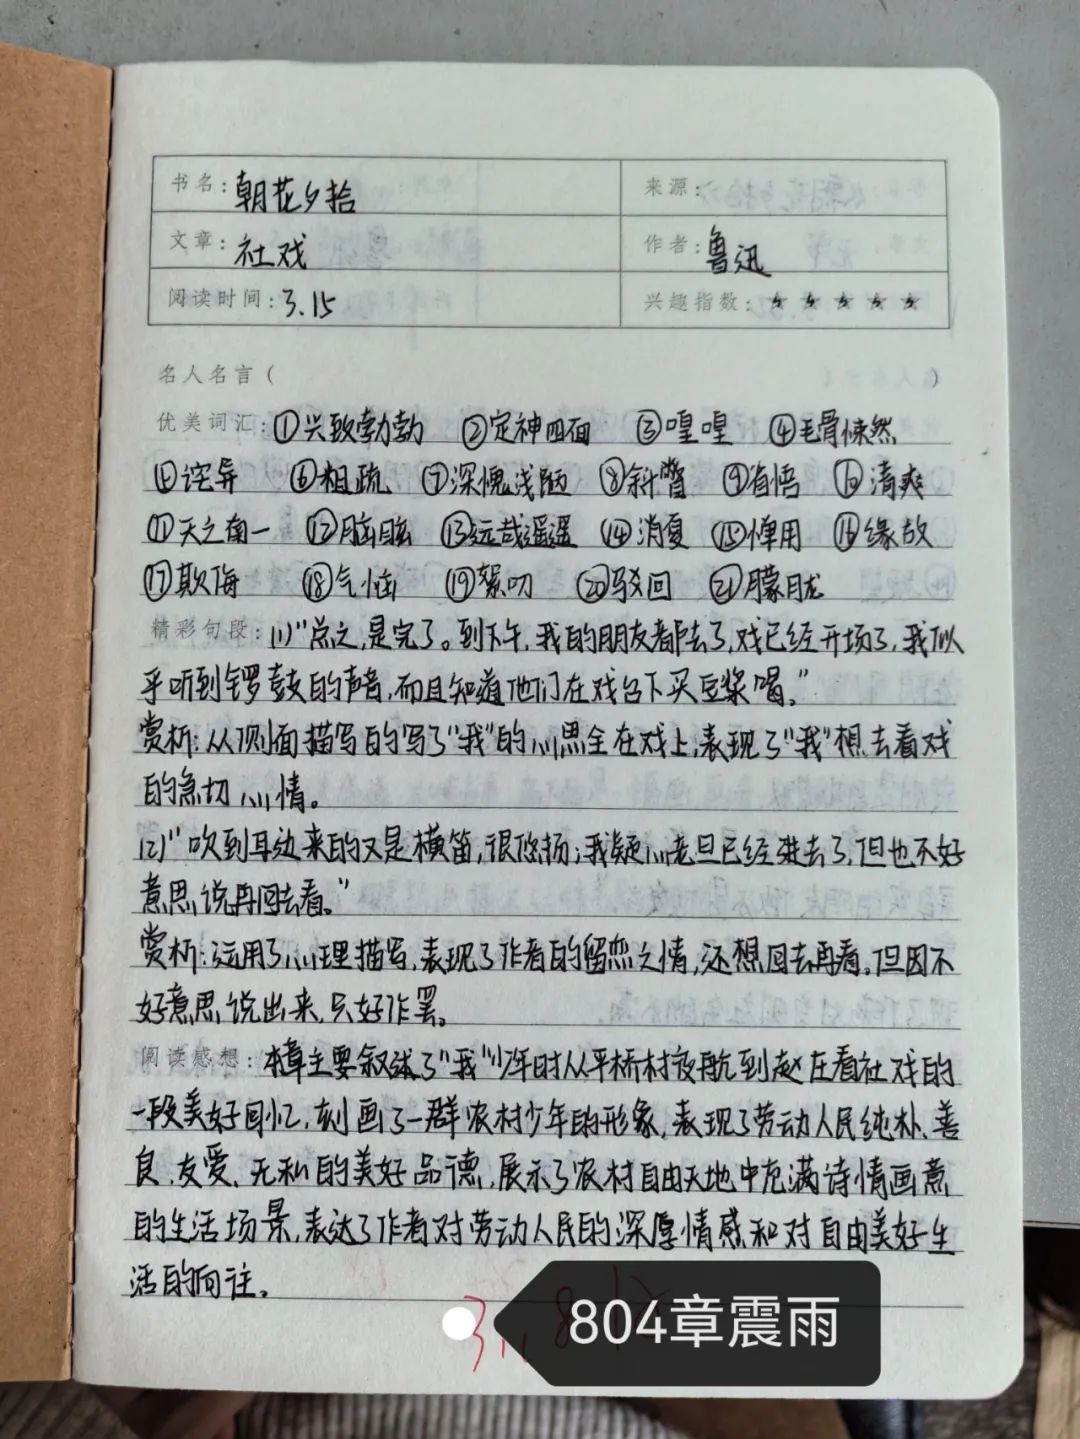 书名: 朝花夕拾 来源:
文章: 社戏 作者: 鲁迅
阅读时间: 3.15 兴趣指数: ★ ★ ★ ★ ★
名人名言( )
优美词汇: ①兴致勃勃 ②定神四面 ③喤喤 ④毛骨悚然
⑤诧异 ⑥粗疏 ⑦深愧浅陋 ⑧斜瞥 ⑨省悟 ⑩清爽
⑪天之南一 ⑫ ⑬远哉遥遥 ⑭消夏 ⑮惮用 ⑯缘故
⑰欺侮 ⑱气恼 ⑲絮叨 ⑳驳回 ㉑朦胧
精彩句段: (1)"总之,是完了。到下午,我的朋友都去了,戏已经开场了,我似
乎听到锣鼓的声音,而且知道他们在戏台下买豆浆喝。"
赏析:从侧面描写的写了"我"的心思全在戏上,表现了"我"想去看戏
的急切心情。
(2)"吹到耳边来的又是横笛,很悠扬;我疑心老旦已经进去了,但也不好
意思说再回去看。"
赏析:运用了心理描写,表现了作者的留恋之情,还想回去再看。但因不
好意思说出来,只好作罢。
阅读感想: 本章主要叙述了"我"少年时从平桥村夜航到赵庄看社戏的
一段美好回忆,刻画了一群农村少年的形象,表现了劳动人民纯朴、善
良、友爱、无私的美好品德,展示了农村自由天地中充满诗情画意
的生活场景,表达了作者对劳动人民的深厚情感和对自由美好生
活的向往。
804章震雨